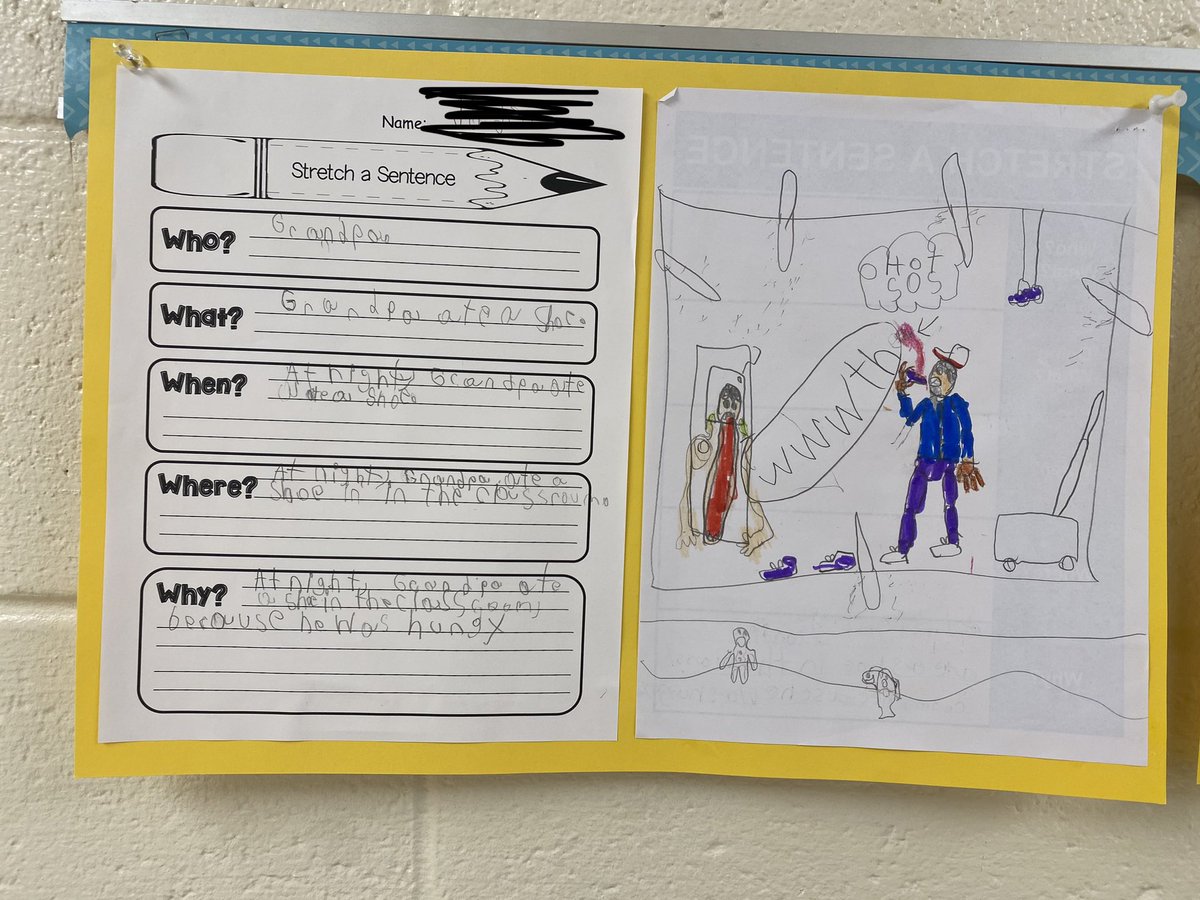 Name:
Stretch a Sentence
Who?
Grandpa
What?
Grandpa ate a shoe.
When?
At night, Grandpa ate
a shoe
Where?
At night, Grandpa ate a
shoe in in the classroom
Why?
At night, Grandpa ate
a shoe in the classroom,
because he was hungy
STRETCH A SENTENCE
HOt
SOS
WWWth